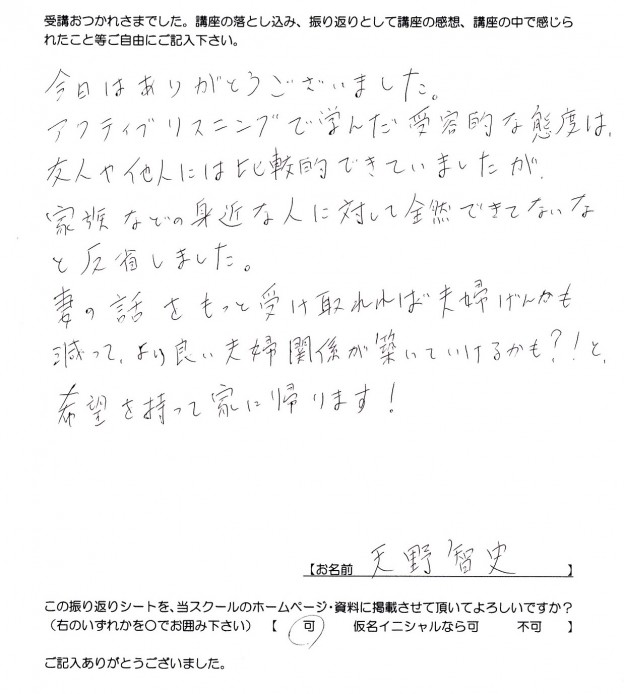 受講おつかれさまでした。講座の落とし込み、振り返りとして講座の感想、講座の中で感じら
れたこと等ご自由にご記入下さい。
今日はありがとうございました。
アクティブリスニングで学んだ受容的な態度は、
友人や他人には比較的できていましたが、
家族などの身近な人に対して全然できてないな
と反省しました。
妻の話をもっと受け取れれば夫婦げんかも
減って、より良い夫婦関係が築いていけるかも?!と、
希望を持って家に帰ります!
【お名前 天野智史 】
この振り返りシートを、当スクールのホームページ・資料に掲載させて頂いてよろしいですか？
（右のいずれかを〇でお囲み下さい） 【 可 仮名イニシャルなら可 不可 】
ご記入ありがとうございました。